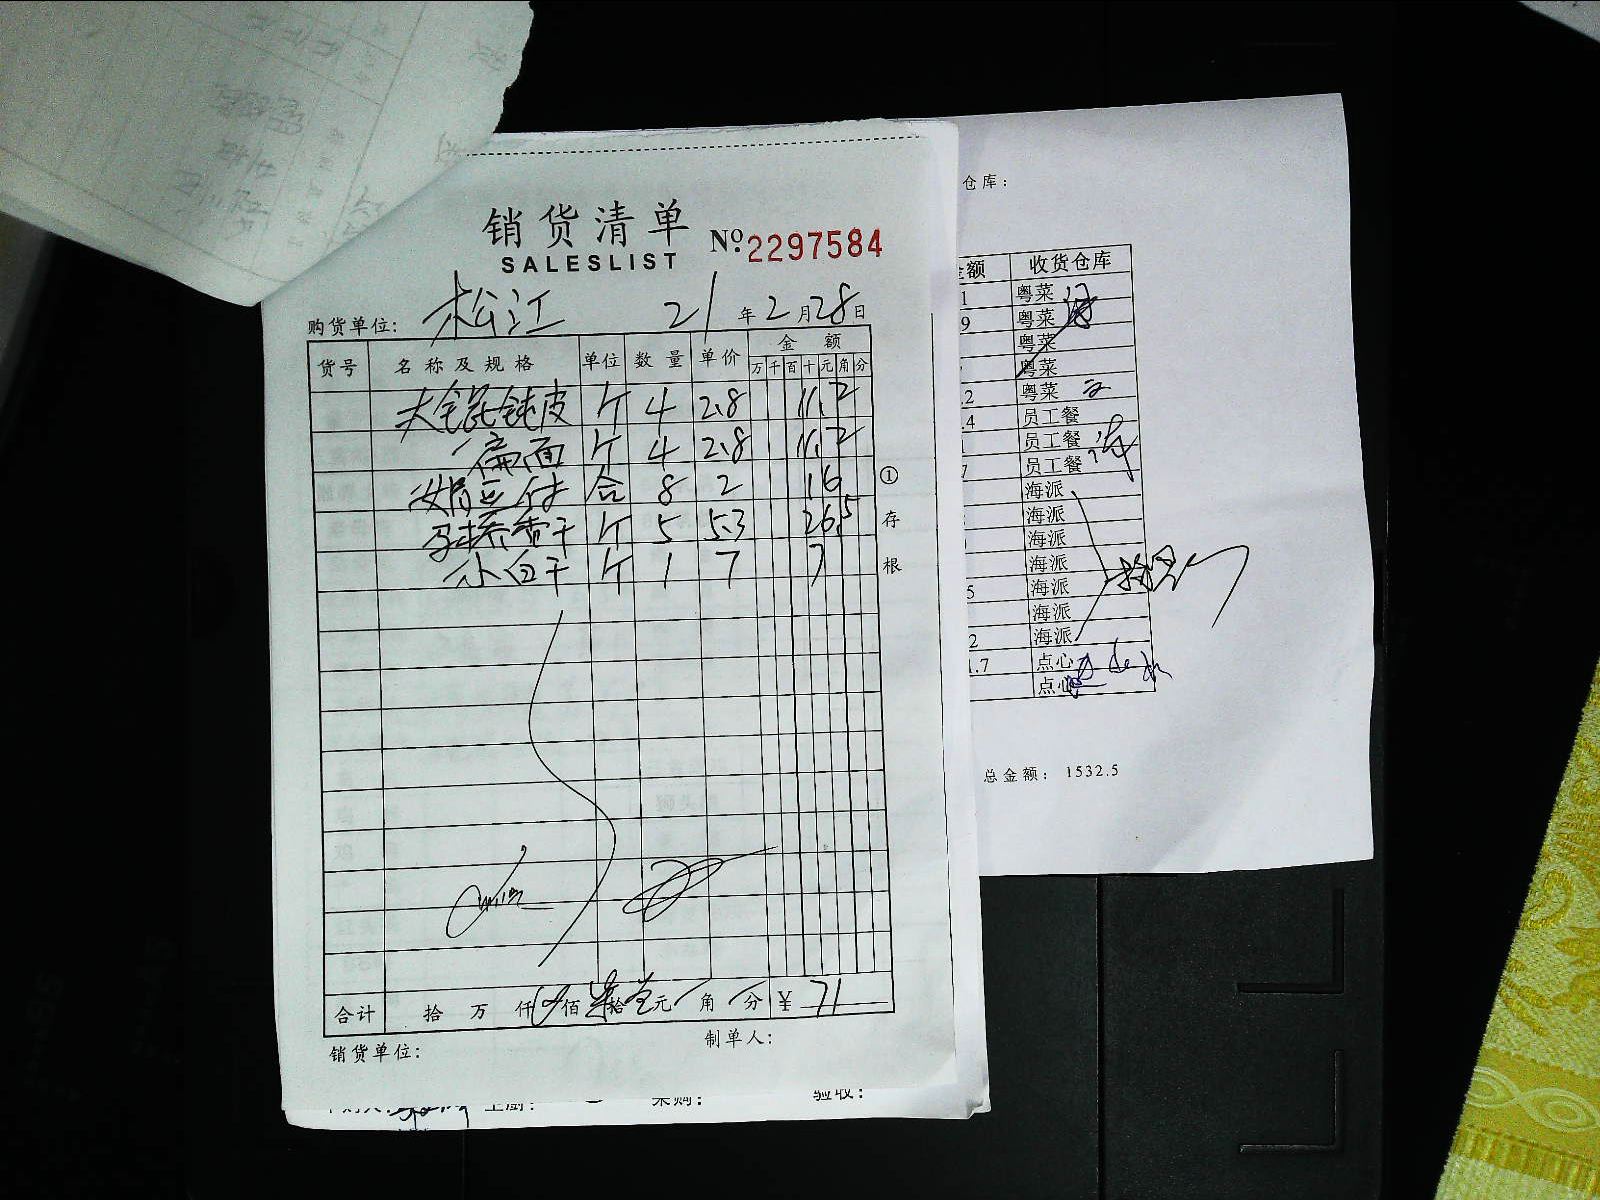 销货清单
SALESLIST
No. 2297584
购货单位: 松江 21年2月28日
货号 名称及规格 单位 数量 单价 金额
万 千 百 十 元 角 分
大馄饨皮 个 4 2.8 11.2
扁面 个 4 2.8 11.2
合 8 2 16
香干 个 5 5.3 26.5
小白干 个 1 7 7
① 存根
合计 拾 万 仟 佰 柒拾壹元 角 分 ¥ 71
销货单位: 制单人:
主厨: 采购: 验收:
仓库:
金额 收货仓库
1 粤菜
9 粤菜
粤菜
粤菜
.2 粤菜
.4 员工餐
1 员工餐
7 员工餐
海派
海派
海派
海派
5 海派
海派
2 海派
1.7 点心
点心
总金额: 1532.5